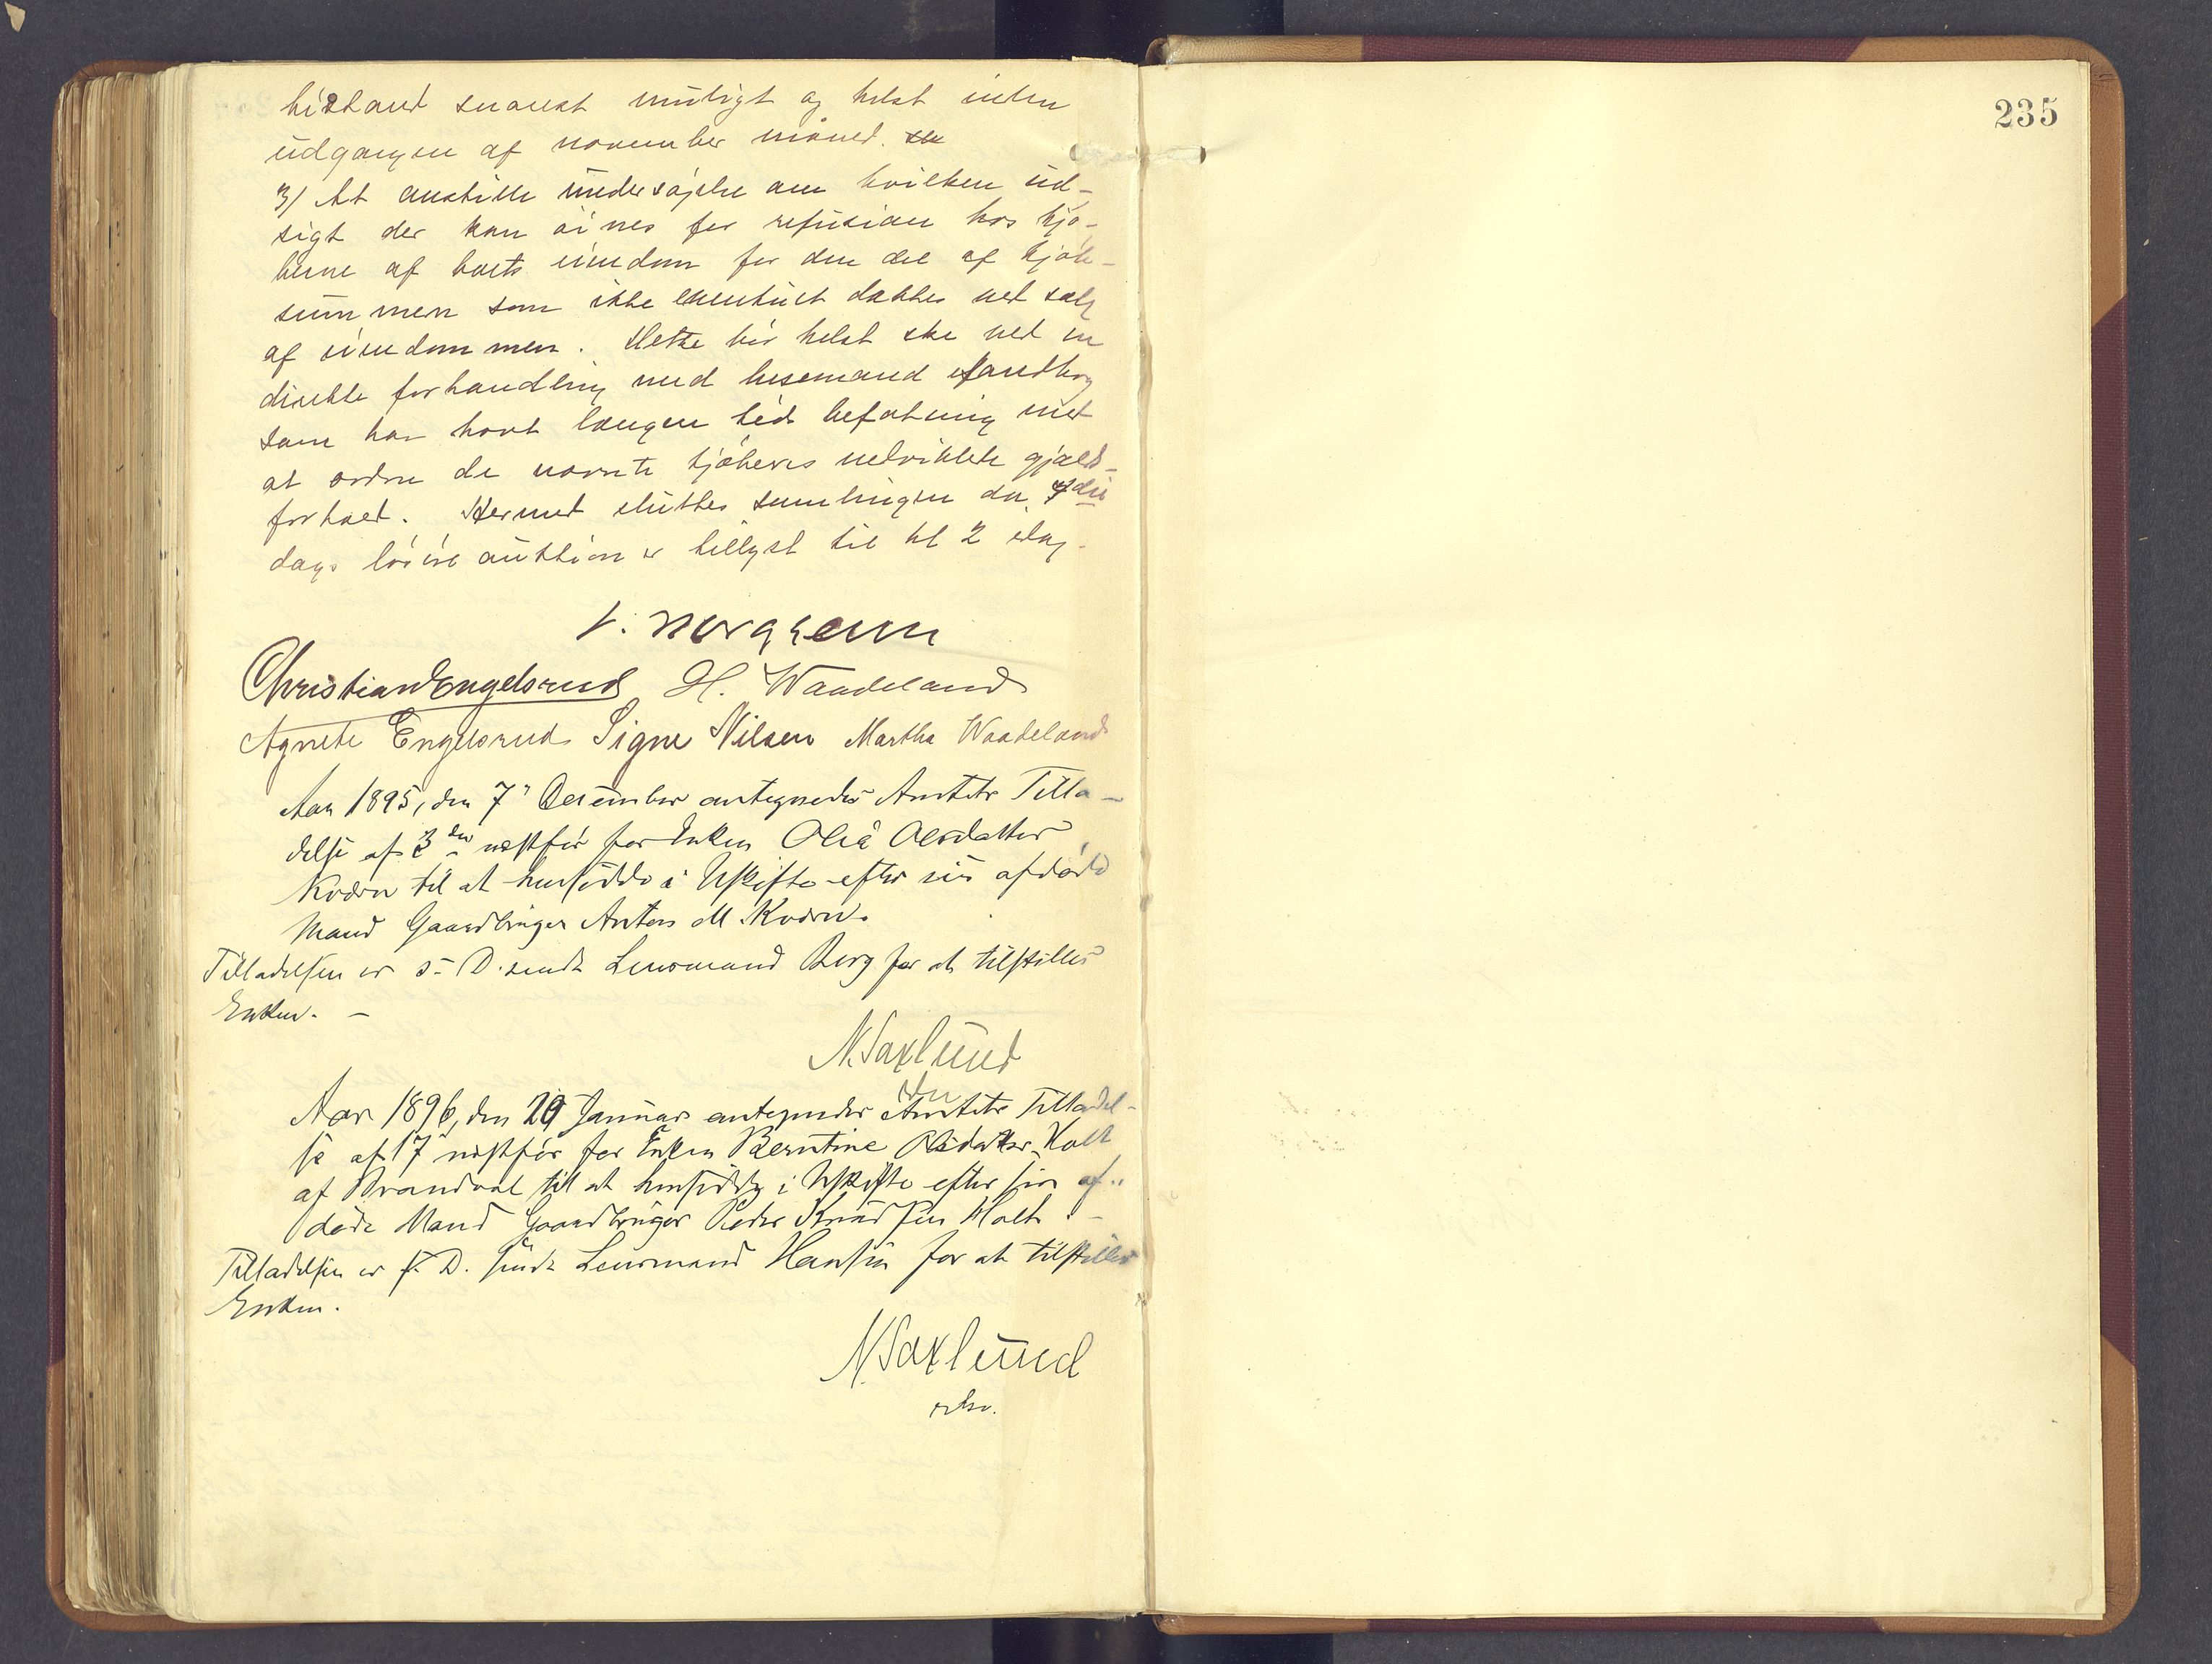 bistand snarest muligt og helst inden
udgangen af november måned.
3/ At anstille undersøgelse om hvilken ud-
sigt der kan øines for refusion hos kjø-
berne af boets eiendom for den del af kjøbe-
summen som ikke eventuelt dækkes ved salg
af eiendommen. Dette bør helst ske ved en
direkte forhandling med lensmand Sandberg
som har havt længere tids befatning med
at ordne de nævnte kjøberes indviklede gjælds-
forhold. Hermed sluttes samlingen da
dags løsøre auktion er tillyst til kl 2 idag.
Christian Engelsrud H. Waadeland
Agnete Engelsrud Signe Nilsen Martha Waadeland
Aar 1895, den 7' December antegnedes Amtets Tilla-
delse af 3die næstfør for Enken Olea Olsdatter
Kværn til at hensidde i Uskifte efter sin afdøde
Mand Gaardbruger Anton M. Kværn.
Tilladelsen er s. D. sendt Lensmand Berg for at tilstilles
Enken. –
N. Saxlund
Aar 1896, den 20 Januar antegnedes Amtets Tilladel-
se af 17' næstfør for Enken Berntine Olsdatter Holt
af Brandval til at hensidde i Uskifte efter sin af-
døde Mand Gaardbruger Peder Knudsen Holt. –
Tilladelsen er s. D. sendt Lensmand Hansen for at tilstilles
Enken.
N. Saxlund
235